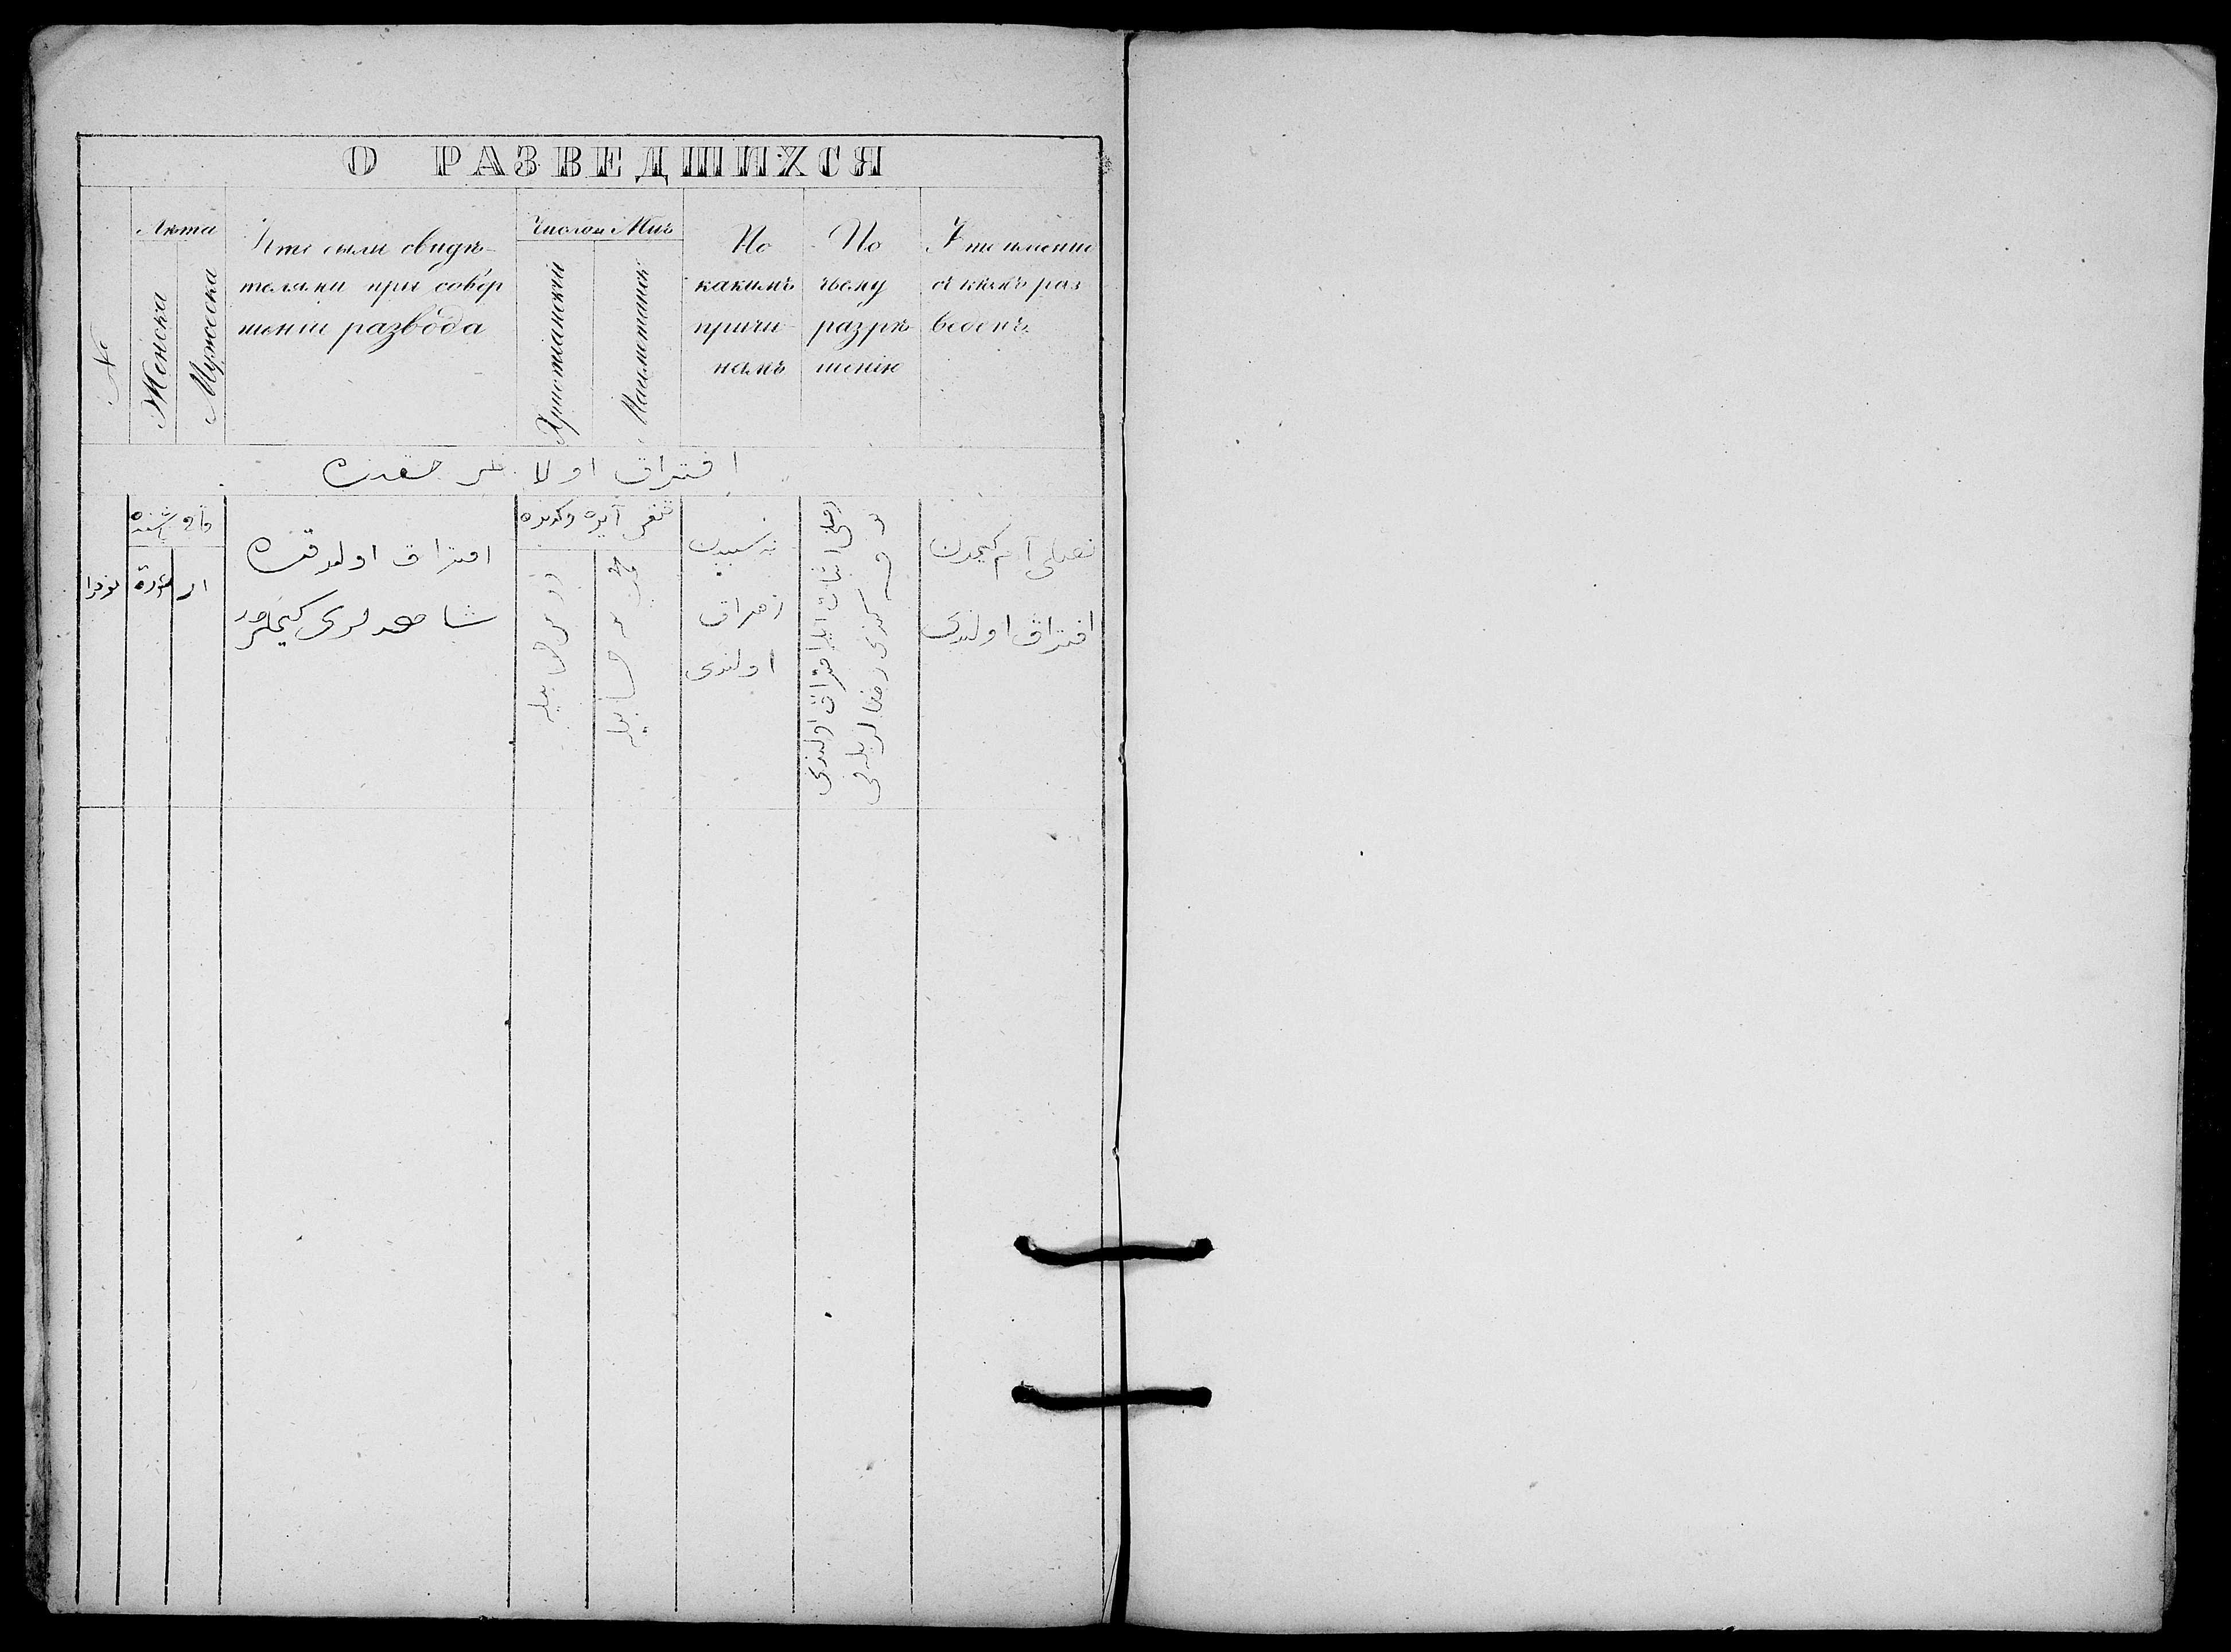 О РАЗВЕДШИХСЯ
№
Лѣта
Женска
Мужеска
Кто были свидѣ-
телями при совер
шеніи развода
Число и Мць
Христіанскій
Магометанскій
По
какимъ
причи-
намъ
По
чьему
разрѣ-
шенію
Кто именно
съ кѣмъ раз
веденъ
افتراق اولانلر حقنده
افتراق اولدقده
شاهدلری کیملردر
نه سببدن
افتراق
اولندی
افتراق اولندی